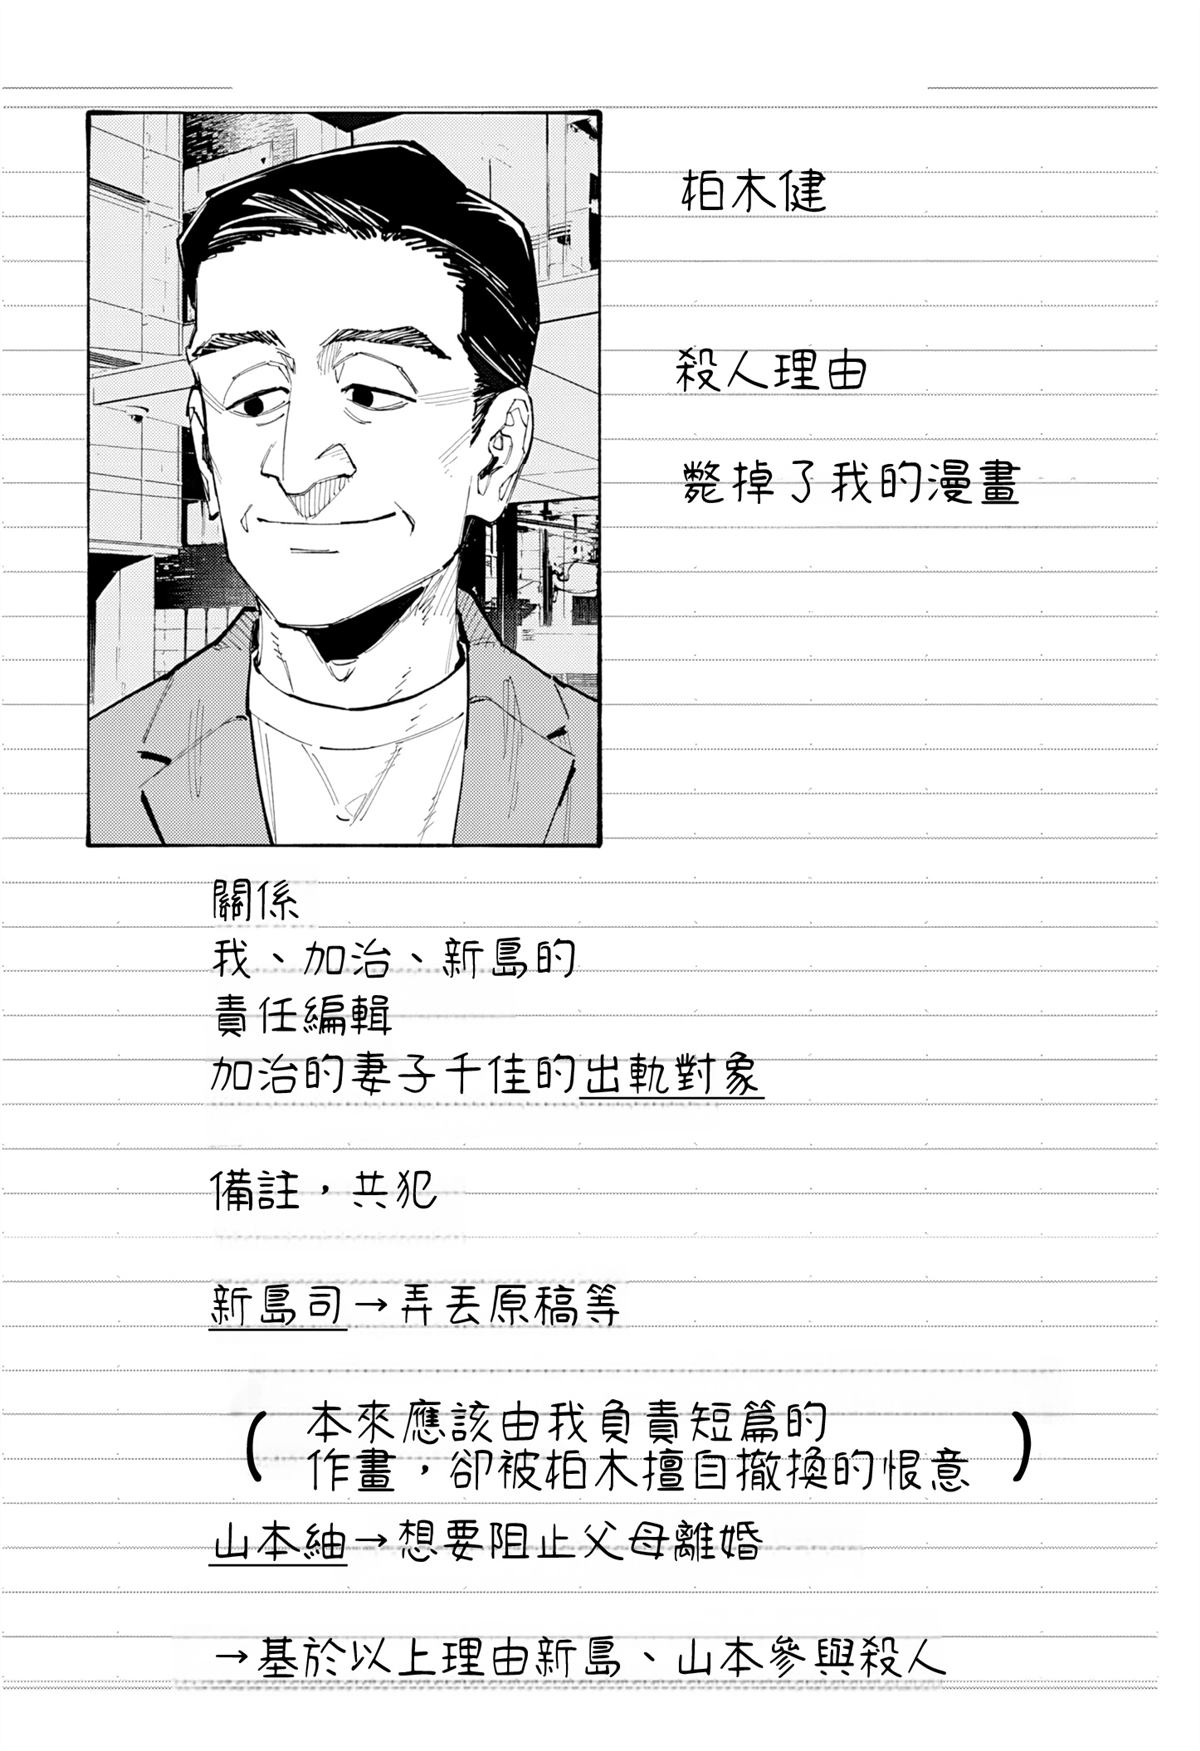 柏木健
殺人理由
斃掉了我的漫畫
關係
我、加治、新島的
責任編輯
加治的妻子千佳的出軌對象
備註，共犯
新島司→弄丟原稿等
（本來應該由我負責短篇的
作畫，卻被柏木擅自撤換的恨意）
山本紬→想要阻止父母離婚
→基於以上理由新島、山本參與殺人